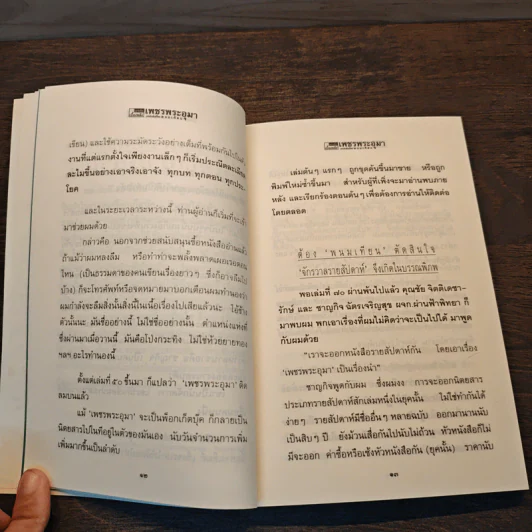 เพชรพระอุมา
เขียน) และใช้ความระมัดระวังอย่างเต็มที่พร้อมกันไปเป็นตั้
งานที่แต่แรกตั้งใจเพียงงานเล็กๆ ก็เริ่มประณีตละเอียด
ละไมขึ้นอย่างเอาจริงเอาจัง ทุกบท ทุกตอน ทุกประ
โยค
และในระยะเวลาระหว่างนี้ ท่านผู้อ่านก็เริ่มที่จะเข้า
มาช่วยผมด้วย
กล่าวคือ นอกจากช่วยสนับสนุนซื้อหนังสืออ่านแล้ว
ถ้าแม้ว่าผมหลงลืม หรือทำท่าจะพลั้งพลาดเผอเรอตอน
ไหน (เป็นธรรมดาของคนเขียนเรื่องยาวๆ ซึ่งก็อาจลืมไป
บ้าง) ก็จะโทรศัพท์หรือจดหมายมาบอกเตือนผมทำนองว่า
ผมกำลังจะลืมสิ่งนั้นสิ่งนี้ในเนื้อเรื่องไปเสียแล้วนะ ไอ้ช้าง
ตัวนั้นนะ มันชื่ออย่างนี้ ไม่ใช่ชื่ออย่างนั้น ตำแหน่งแห่งที่
ซึ่งผ่านมาเมื่อวานนี้ มันคือโป่งกระทิง ไม่ใช่ห้วยยายทอง
ฯลฯ อะไรทำนองนี้
ตั้งแต่เล่มที่ ๕๐ ขึ้นมา ก็แปลว่า 'เพชรพระอุมา' ติด
ลมบนแล้ว
แม้ 'เพชรพระอุมา' จะเป็นพ็อกเก็ตบุ๊ค ก็กลายเป็น
นิตยสารไปในที่อยู่ในตัวของมันเอง นับวันจำนวนการเพิ่ม
เพิ่มมากขึ้นเป็นลำดับ
๑๒
เพชรพระอุมา
เล่มต้นๆ แรกๆ ถูกขุดค้นขึ้นมาขาย หรือถูก
พิมพ์ใหม่ซ้ำขึ้นมา สำหรับผู้ที่เพิ่งจะมาอ่านพบภาย
หลัง และเรียกร้องตอนต้นๆ เพื่อต้องการอ่านให้ติดต่อ
โดยตลอด
ต้อง 'พนมเทียน' ตัดสินใจ
'จักรวาลรายสัปดาห์' จึงเกิดในบรรณพิภพ
พอเล่มที่ ๗๐ ผ่านพ้นไปแล้ว คุณชัย จิตติเดชา-
รักษ์ และ ชาญกิจ ฉัตรเจริญสุข ผจก.ผ่านฟ้าพิทยา ก็
มาพบผม พกเอาเรื่องที่ผมไม่คิดว่าจะเป็นไปได้ มาพูด
กับผมด้วย
"เราจะออกหนังสือรายสัปดาห์กัน โดยเอาเรื่อง
'เพชรพระอุมา' เป็นเรื่องนำ"
ชาญกิจพูดกับผม ซึ่งผมงง การจะออกนิตยสาร
ประเภทรายสัปดาห์สักเล่มหนึ่งในยุคนั้น ไม่ใช่ทำกันได้
ง่ายๆ รายสัปดาห์มีชื่ออื่นๆ หลายฉบับ ออกมานานนับ
เป็นสิบๆ ปี ยังม้วนเสื่อกันไปนับไม่ถ้วน หัวหนังสือก็ไม่
มีจะออก ค่าซื้อหรือเซ้งหัวหนังสือกัน (ยุคนั้น) ราคานับ
๑๓